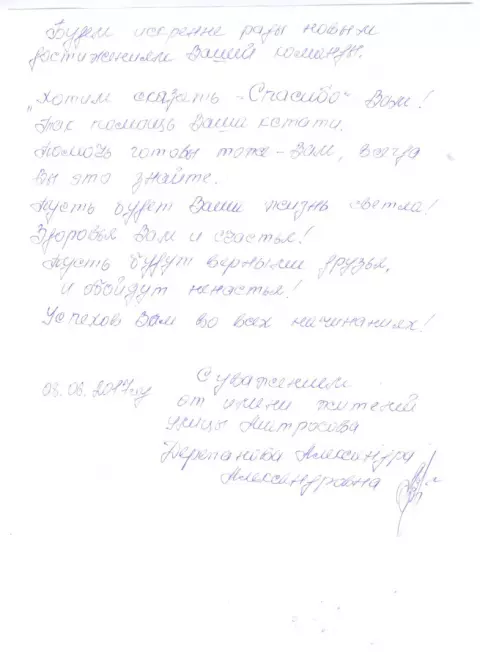 Будем искренне рады новым
достижениям Вашей команды.
„Хотим сказать -Спасибо" Вам!
Так помощь Ваша кстати.
Помочь готовы тоже - Вам, всегда
Вы это знайте.
Пусть будет Ваша жизнь светла!
Здоровья Вам и счастья!
Пусть будут верными друзья,
и обойдут ненастья!
Успехов Вам во всех начинаниях!
С уважением
08.06.2017г
от имени жителей
улицы
Александра
Александровна